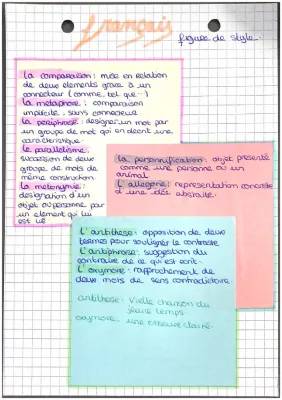 Français
figures de style.
la comparaison: mise en relation
de deux elements grace à un
connecteur (comme, tel que...)
la métaphore: comparaison
implicite, sans connecteur
la periphrase: designer un mot par
un groupe de mot qui en decrit une
caractéristique
le parallelisme:
succession de deux
groupe de mots de
même construction
la metonymie:
designation d'un
objet ou personne par
un element qui lui
est lié
la personnification: objet presenté
comme une personne ou un
animal.
L'allegorie: representation concrete
d'une idée abstraite.
L'antithese: opposition de deux
termes pour souligner le contraste
L'antiphrase: suggestion du
contraire de ce qui est écrit.
L'oxymore: rapprochement de
deux mots de sens contradictoire.
antithèse: Vielle chanson du
jeune temps
oxymore: une obscure clarté.